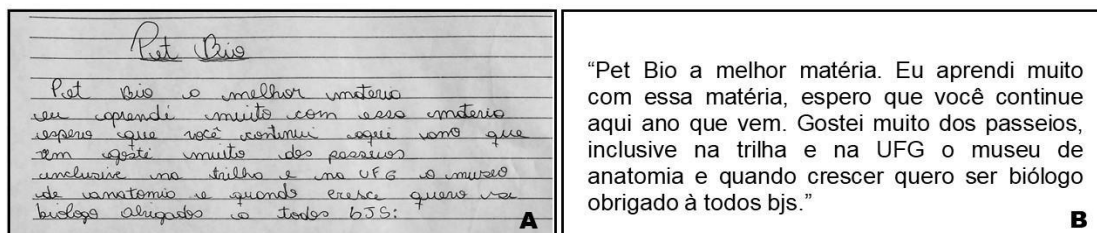 Pet Bio
Pet Bio a melhor materia
eu aprendi muito com essa materia
espero que você continui aqui ano que
vem goste muito dos passeios
inclusive na trilha e na UFG o museo
de anatomia e quando cresce quero se
biologo obrigados a todos bjs:
A
“Pet Bio a melhor matéria. Eu aprendi muito
com essa matéria, espero que você continue
aqui ano que vem. Gostei muito dos passeios,
inclusive na trilha e na UFG o museu de
anatomia e quando crescer quero ser biólogo
obrigado à todos bjs.”
B